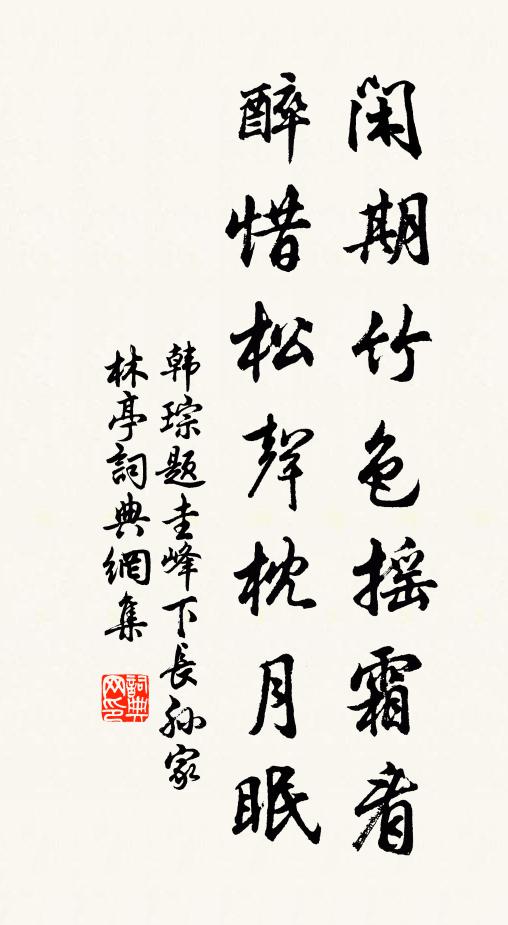 闲期竹色摇霜看
醉惜松聲枕月眠
韩琮题圭峰下長孙家
林亭詞典網集
詞典
网印